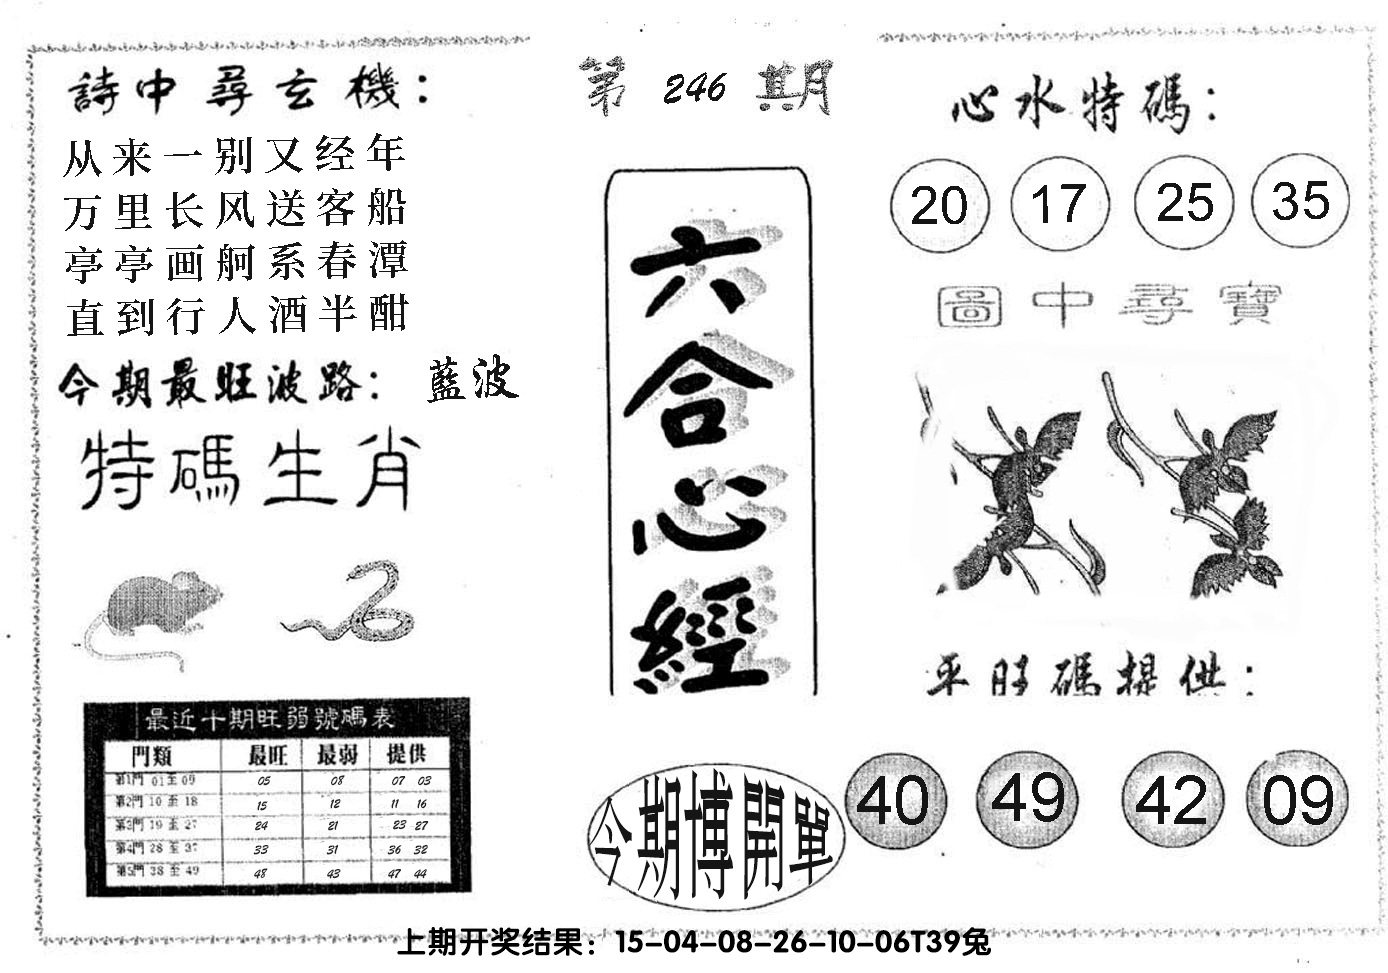 詩中尋玄機：
从来一别又经年
万里长风送客船
亭亭画舸系春潭
直到行人酒半酣
今期最旺波路： 藍波
特碼生肖
最近十期旺弱號碼表
門類 最旺 最弱 提供
第1門 01至09 05 08 07 03
第2門 10至18 15 12 11 16
第3門 19至27 24 21 23 27
第4門 28至37 33 31 36 32
第5門 38至49 48 43 47 44
第246期
六合心經
今期博開單
心水特碼：
20 17 25 35
圖中尋寶
平旺碼提供：
40 49 42 09
上期开奖结果：15-04-08-26-10-06T39兔